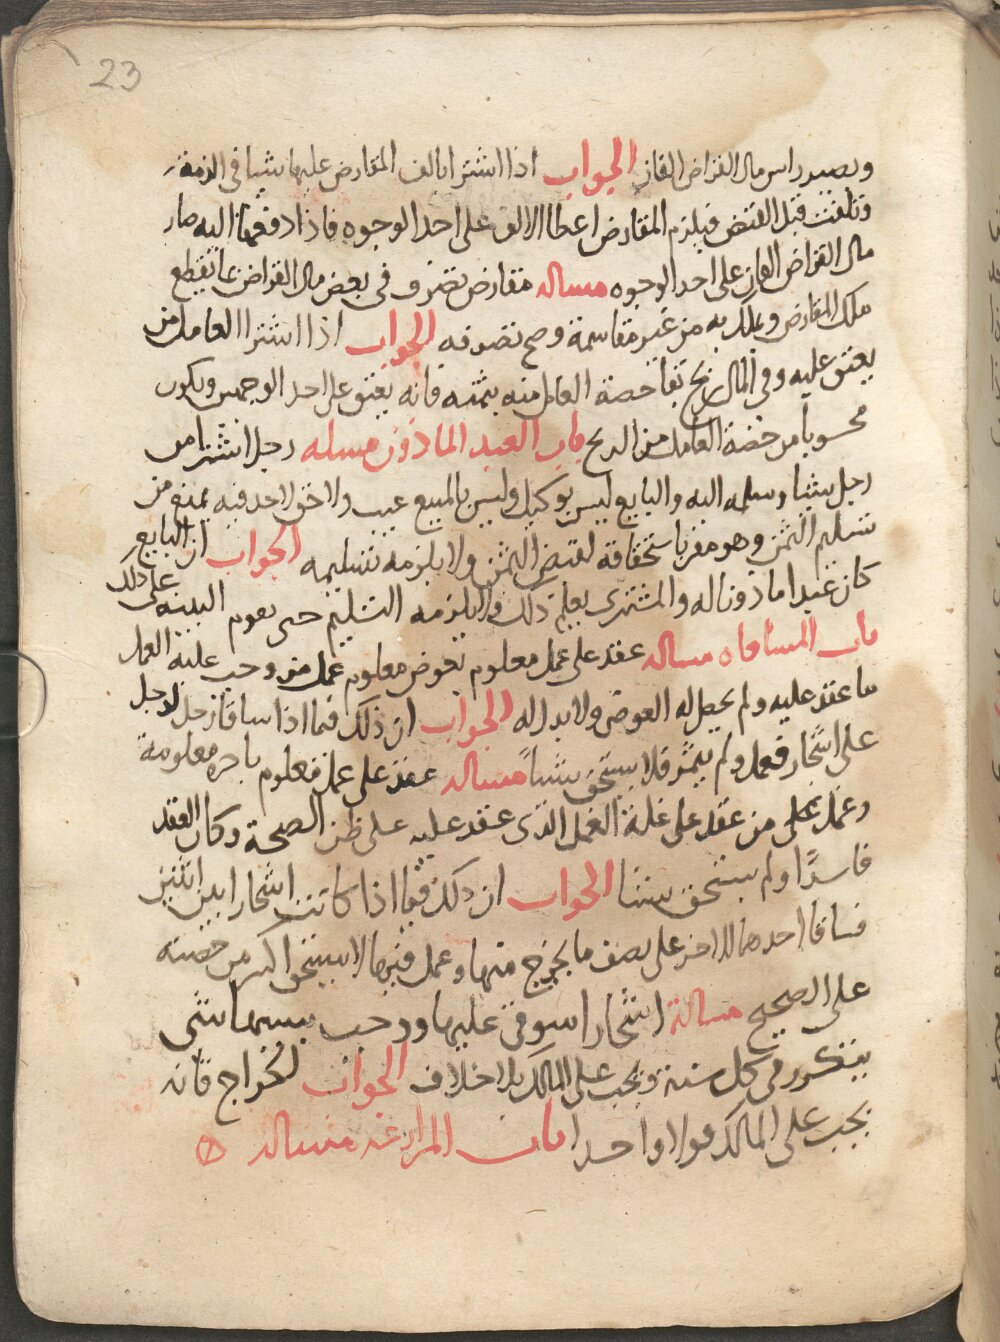 23
ويصير راس مال القراض الفان الجواب اذا اشترا بالف المقارض عليها شيا في الذمة
وتلفت قبل القبض فيلزم المقارض اعطا الالف على احد الوجوه فاذا دفعها اليه صار
مال القراض الفان على احد الوجوه مساله مقارض تصرف في بعض مال القراض بما تقطع
ملك المقارض ويملك به من غير مقاسمة وصح تصرفه الجواب اذا اشترا العامل من
يعتق عليه وفي المال ربح بقا حصة العامل منه بثمنه فانه يعتق على احد الوجهين ويكون
محسوبا من حصة العامل من الربح باب العبد الماذون مسله رجل اشترا من
رجل شيا وسلمه اليه والبايع ليس بوكيل وليس بالمبيع عيب ولا حق لاحد فيه يمنع من
تسليم الثمن وهو مقر باستحقاقه لقبض الثمن ولا يلزمه تسليمه الجواب ان البايع
كان عبدا ماذونا له والمشتري يعلم ذلك ولا يلزمه التسليم حتى يقوم البينه على ذلك
باب المساقاه مساله عقد على عمل معلوم بعوض معلوم عمل من وجب عليه العمل
ما عقد عليه ولم يحصل له العوض ولا بدل له الجواب ان ذلك فيما اذا ساقا رجل لرجل
على اشجار فعمل ولم يثمر فلا يستحق شيا مساله عقد على عمل معلوم باجره معلومة
وعمل من عقد على علة العمل الذي عقد عليه على ظن الصحة وكان العقد
فاسدا ولم يستحق شيا الجواب ان ذلك فيما اذا كانت اشجارا بين اثنين
فساقا احدهما للاخر على نصف ما يخرج منها وعمل فيها لا يستحق اكثر من حصته
على الصحيح مسالة اشجار اسوقي عليها ووجب بسببها شي
يتكرر في كل سنة ويجب على المالك بلا خلاف الجواب الخراج فانه
يجب على المالك قولا واحدا باب المزارعه مساله